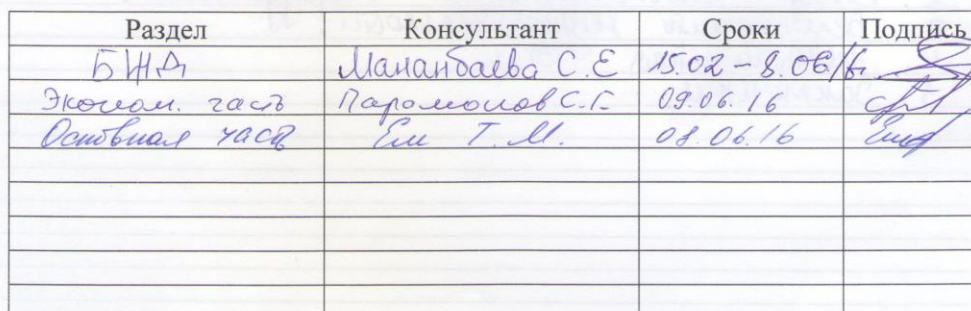 Раздел Консультант Сроки Подпись
БЖД Мананбаева С.Е 15.02 – 8.06/16.
Эконом. часть Парамонов С.Г. 09.06.16
Основная часть Ем Т.М. 08.06.16